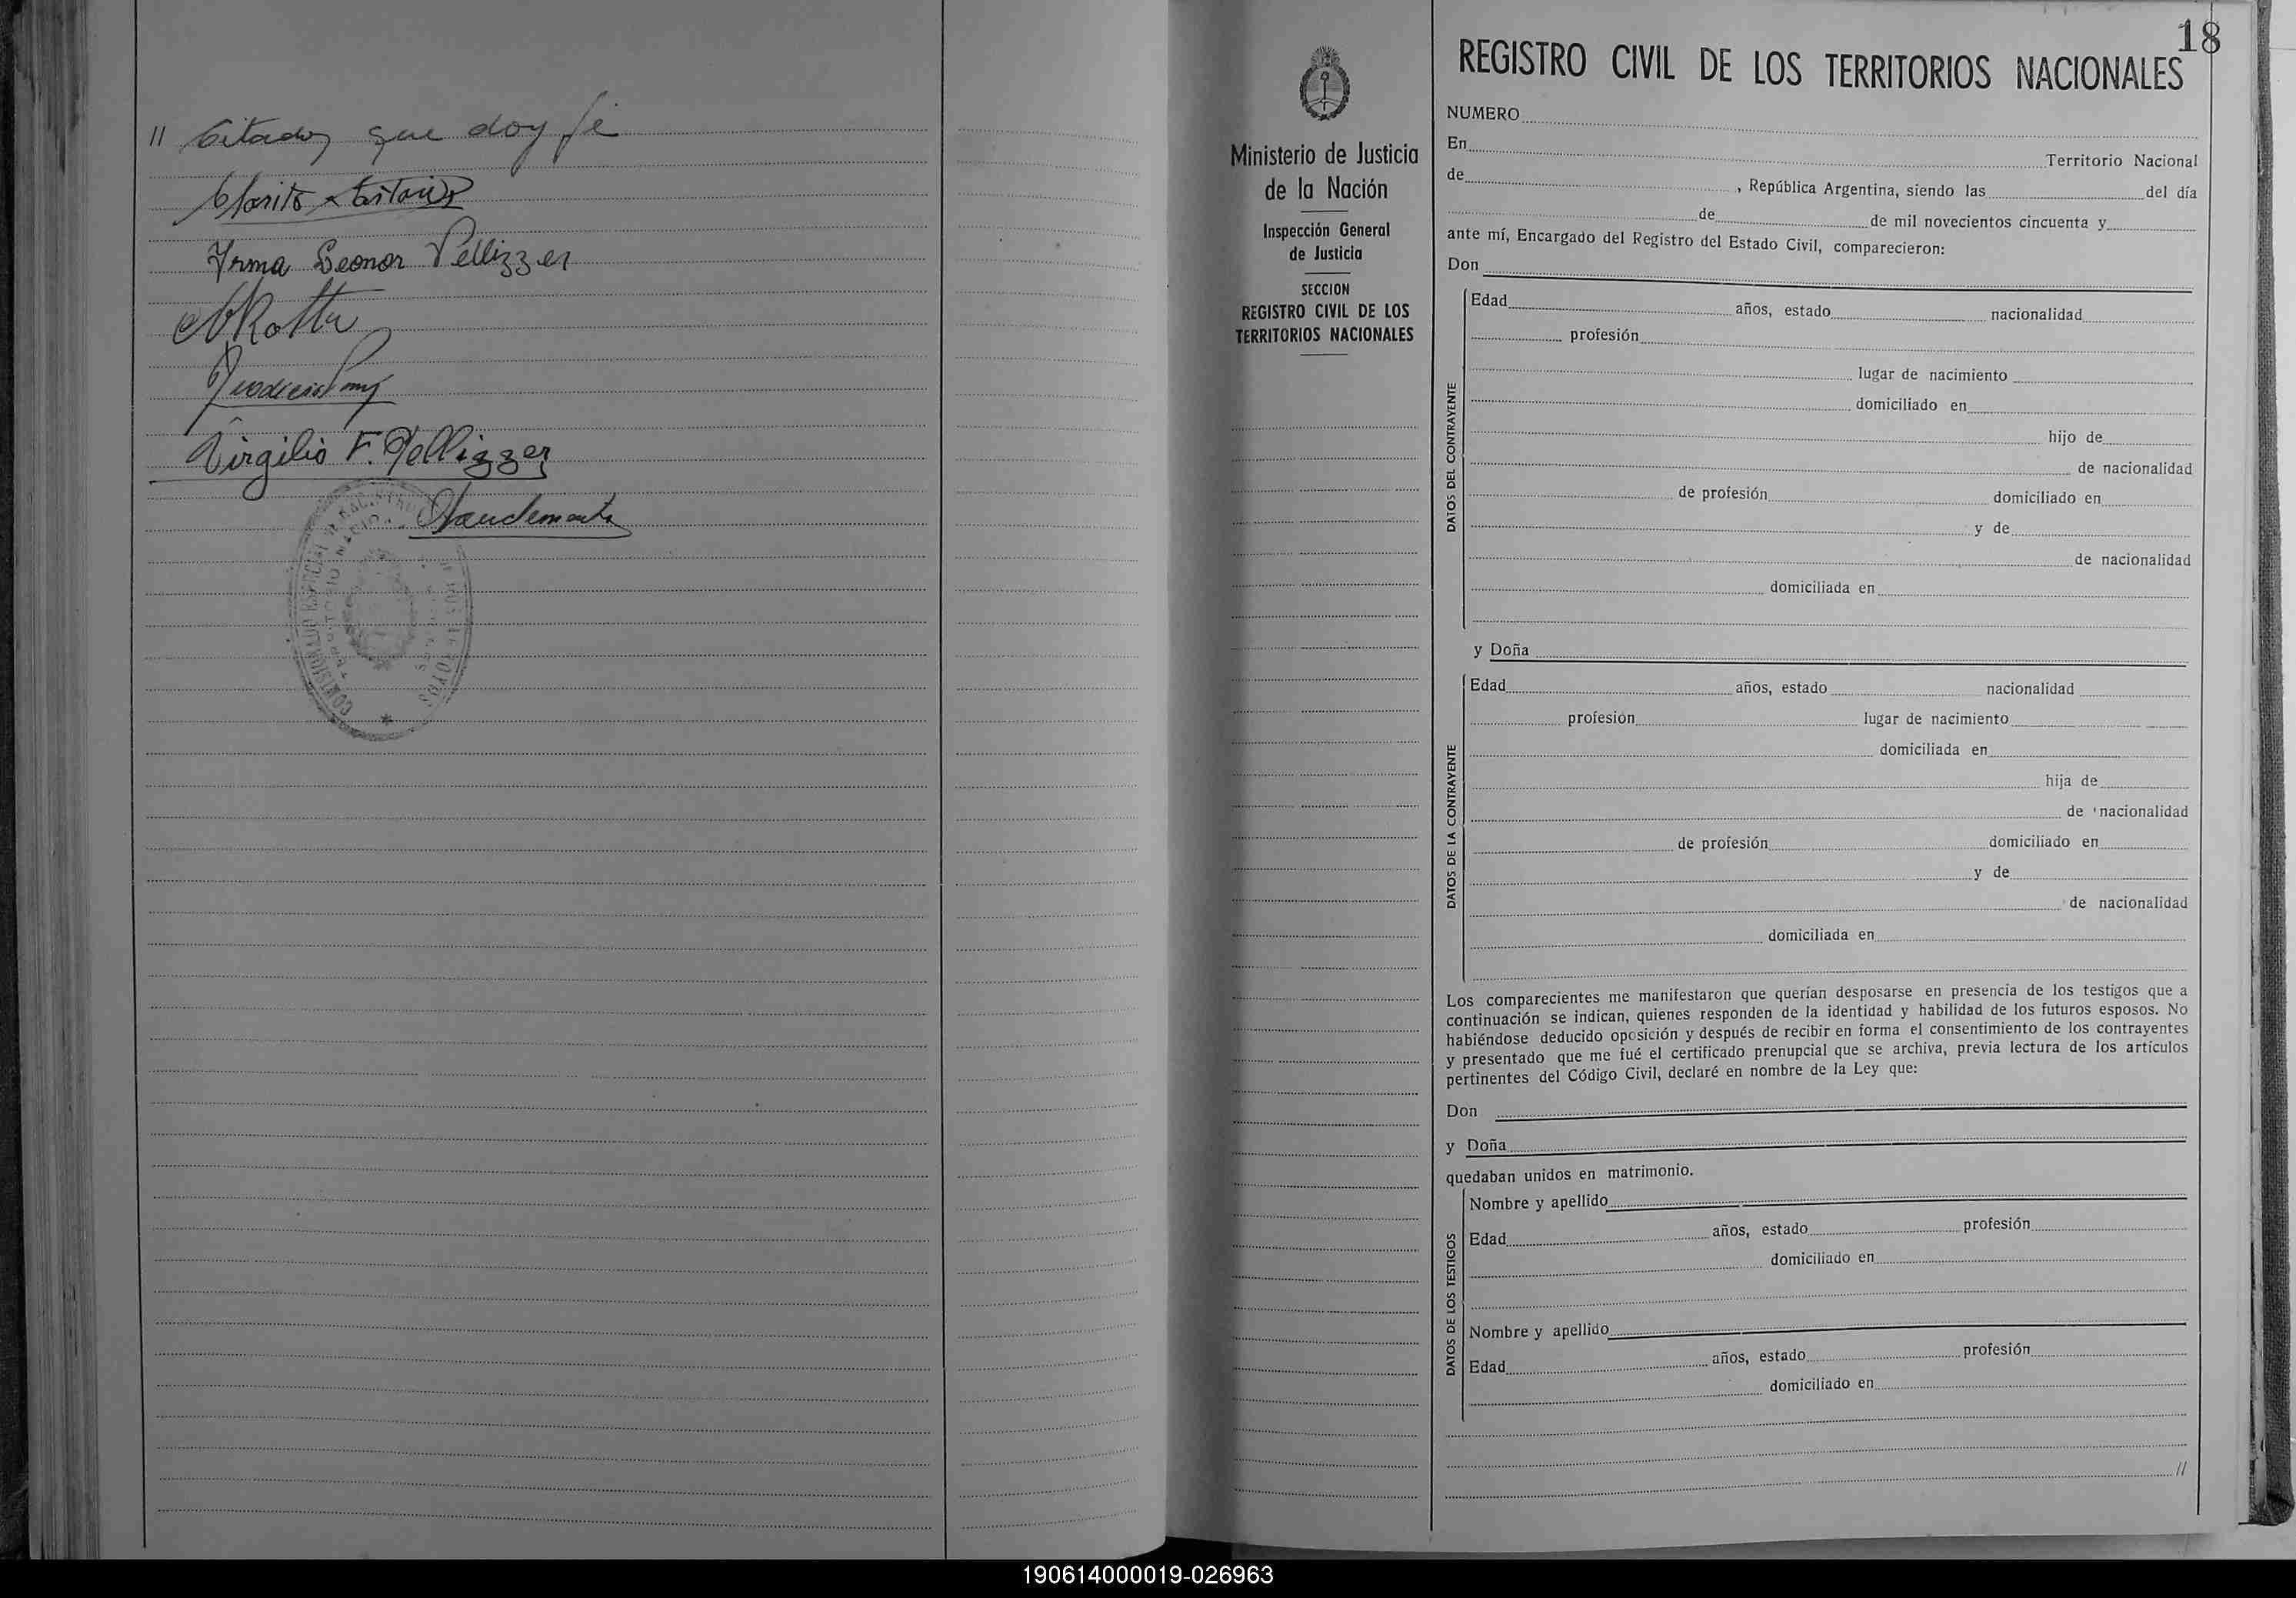 // citados que doy fé
Irma Leonor Pellizzer
Virgilio F. Pellizzer
18
REGISTRO CIVIL DE LOS TERRITORIOS NACIONALES
Ministerio de Justicia
de la Nación
Inspección General
de Justicia
SECCION
REGISTRO CIVIL DE LOS
TERRITORIOS NACIONALES
NUMERO
En Territorio Nacional
de , República Argentina, siendo las del día
de de mil novecientos cincuenta y
ante mí, Encargado del Registro del Estado Civil, comparecieron:
Don
DATOS DEL CONTRAYENTE
Edad años, estado nacionalidad
profesión
lugar de nacimiento
domiciliado en
hijo de
de nacionalidad
de profesión domiciliado en
y de
de nacionalidad
domiciliada en
y Doña
DATOS DE LA CONTRAYENTE
Edad años, estado nacionalidad
profesión lugar de nacimiento
domiciliada en
hija de
de nacionalidad
de profesión domiciliado en
y de
de nacionalidad
domiciliada en
Los comparecientes me manifestaron que querían desposarse en presencia de los testigos que a
continuación se indican, quienes responden de la identidad y habilidad de los futuros esposos. No
habiéndose deducido oposición y después de recibir en forma el consentimiento de los contrayentes
y presentado que me fué el certificado prenupcial que se archiva, previa lectura de los artículos
pertinentes del Código Civil, declaré en nombre de la Ley que:
Don
y Doña
quedaban unidos en matrimonio.
DATOS DE LOS TESTIGOS
Nombre y apellido
Edad años, estado profesión
domiciliado en
Nombre y apellido
Edad años, estado profesión
domiciliado en
//
190614000019-026963